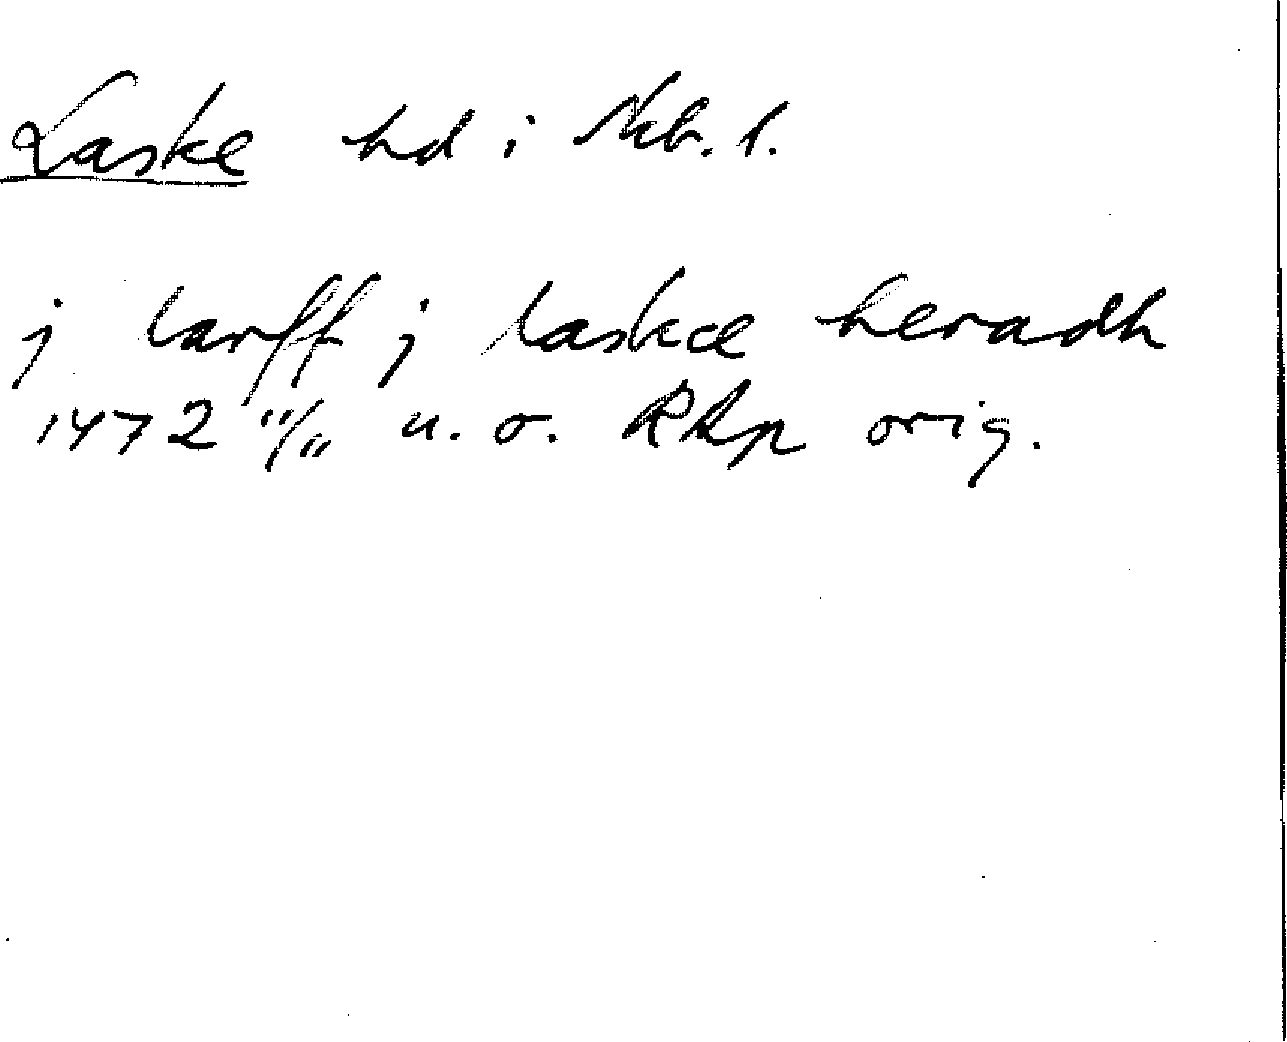 Laske hd i Skb. l.
j larff j laskæ heradh
1472 11/11 u. o. RAp orig.